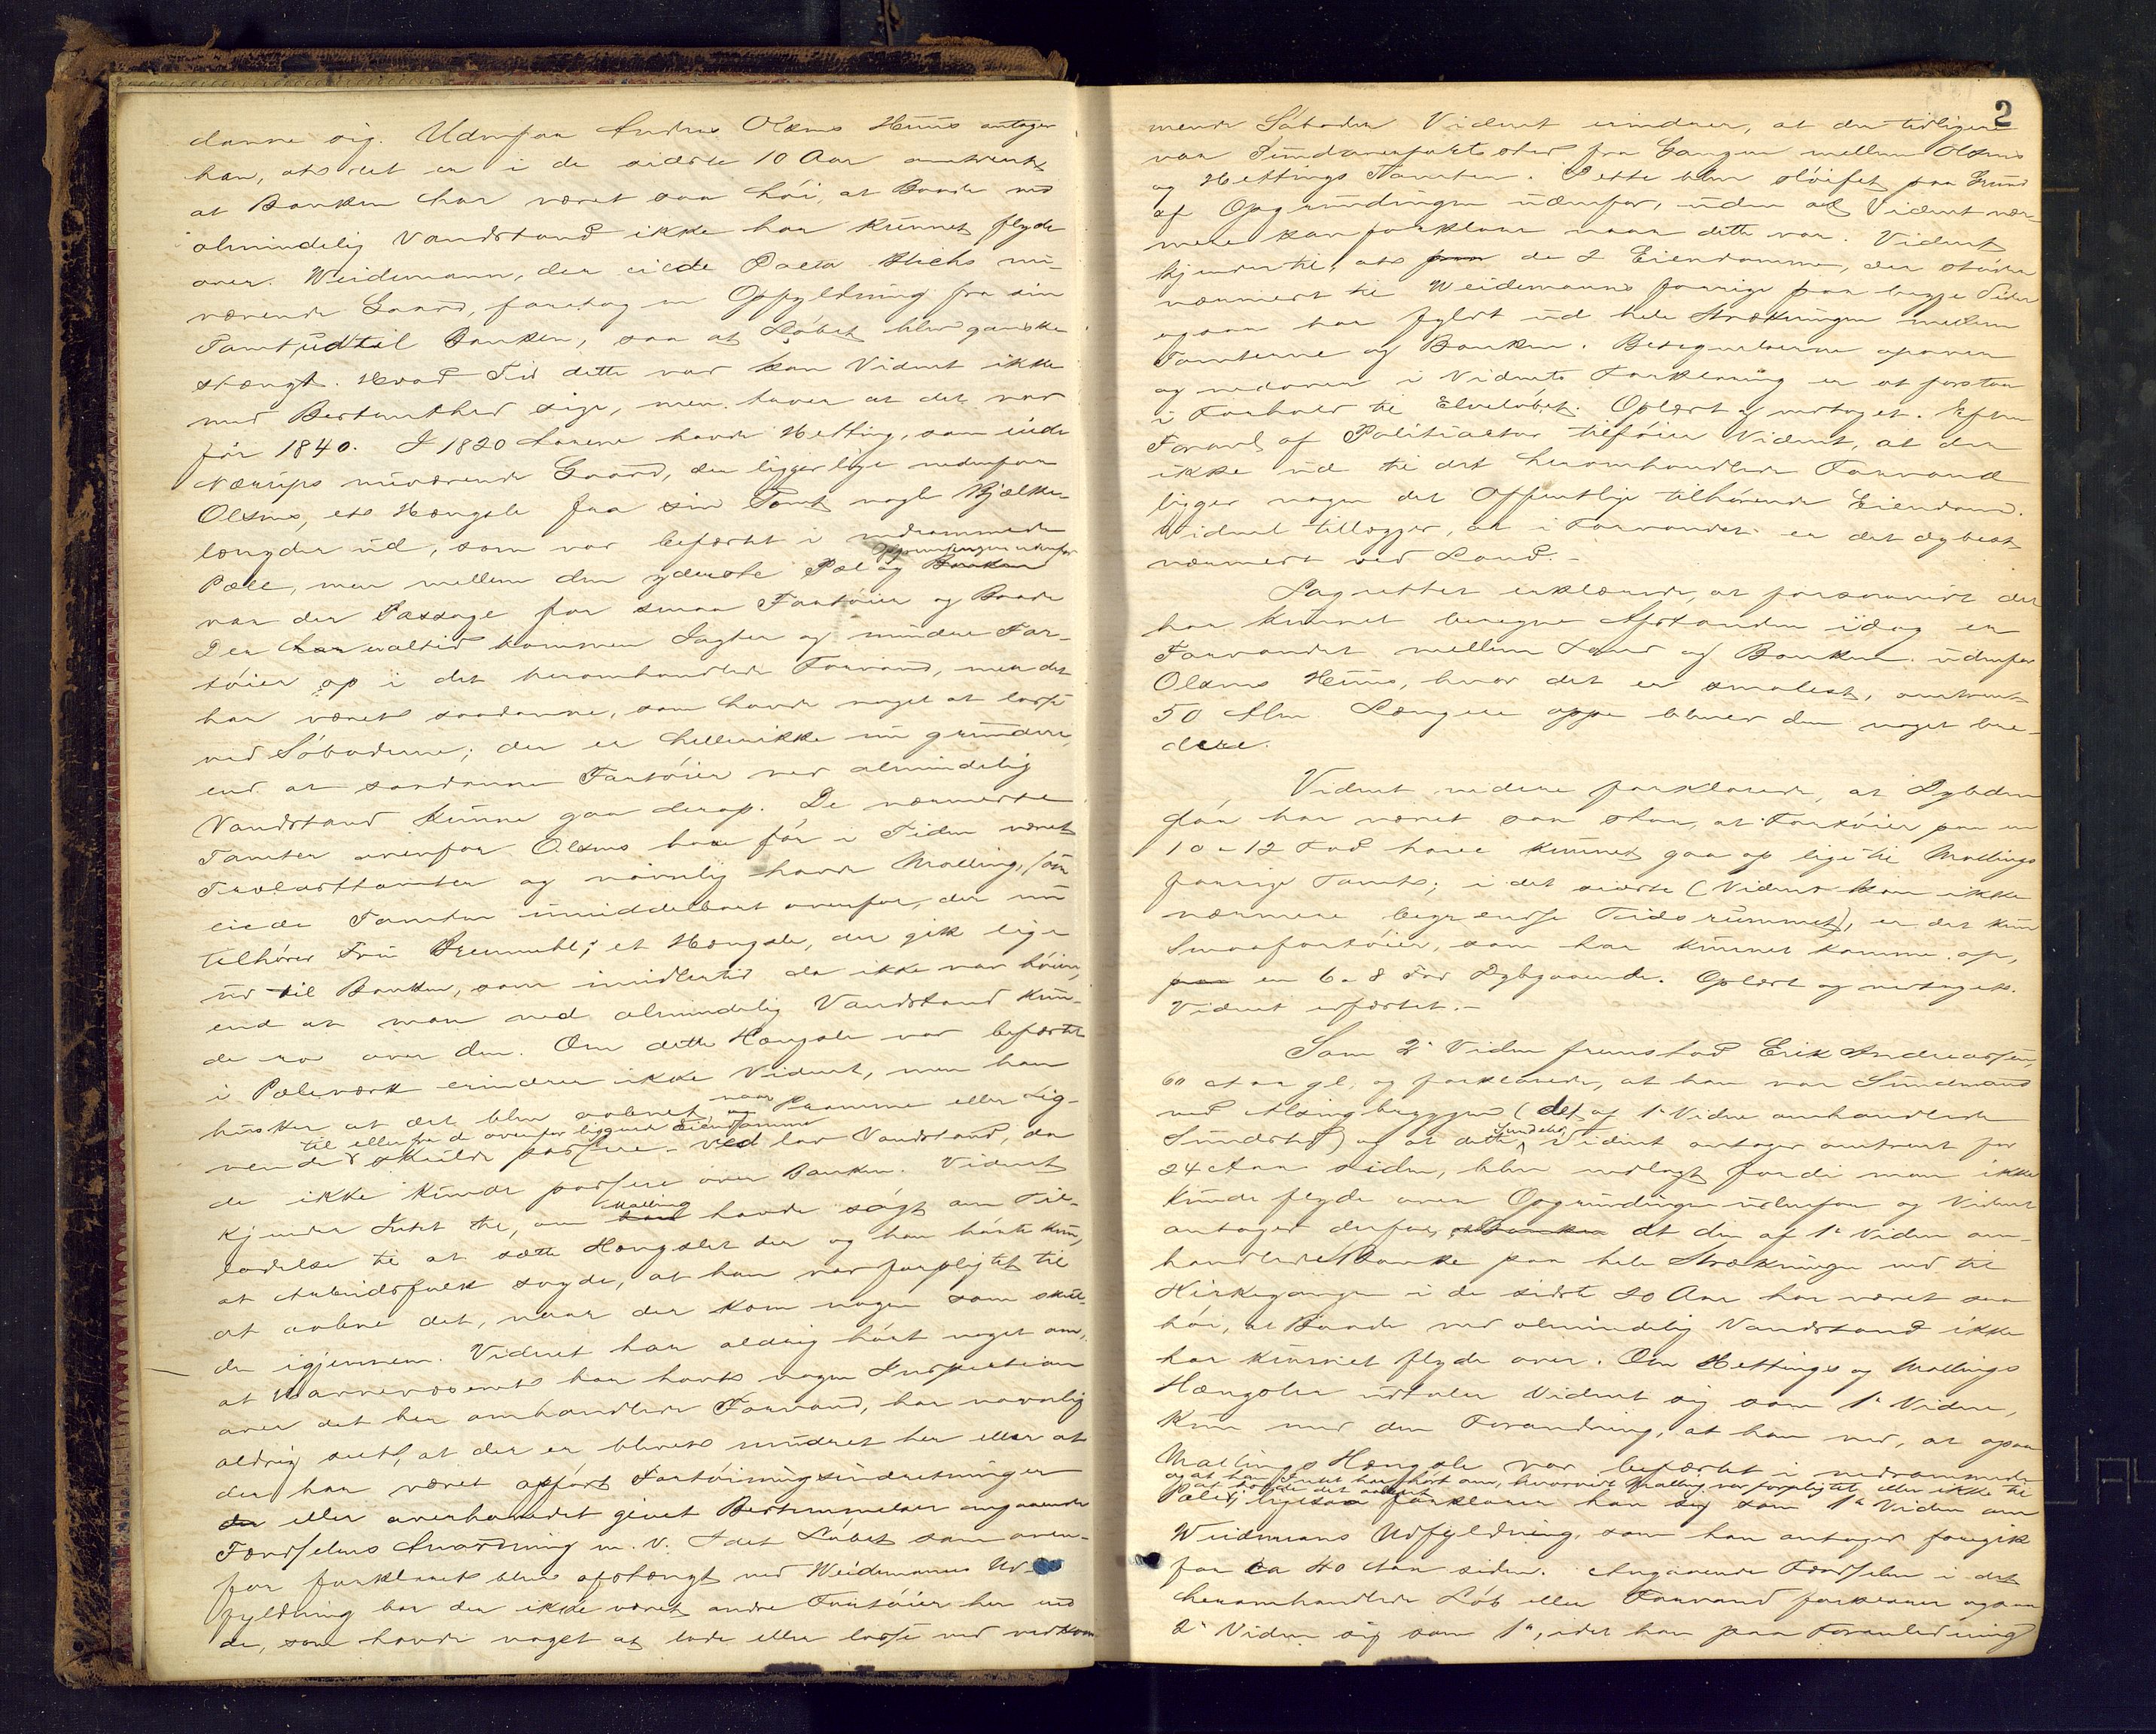 danne sig. Udenfor Anders Olsens Huus antager
han, at det er i de sidste 10 Aar omtrent,
at Banken har været saa höi, at Baade ved
almindelig Vandstand ikke har kunnet flyde
over. Weidemann, der eiede Paeta Blichs nu-
værende Gaard, foretog en Opfyldning fra sin
Tomt ud til Banken, saa at Löbet blev ganske
stængt. Hvad Tid dette var kan Vidnet ikke
med Bestemthed sige, men troer at det var
för 1840. I 1820 Aarene havde Hetting, som eiede
Nærups nuværende Gaard, der ligger lige nedenfor
Olsens, et Hængsle fra sin Tomt nogle Bjælke-
længder ud, som var befæstet i nedrammede
Pæle, men mellem den yderste Pæl og Opgrundingen udenfor
var der Passage for smaa Fartöier og Baade
Der har altid kommen Jagter og mindre Far-
töier op i det heromhandlede Farvand, men det
har været saadanne, som havde noget at losse
ved Söboderne; der er heller ikke nu grundere,
end at saadanne Fartöier ved almindelig
Vandstand kunne gaa derop. De nærmeste
Tomter ovenfor Olsens har för i Tiden været
Trælasttomter og navnlig havde Malling, som
eiede Tomten umiddelbart ovenfor, der nu
tilhörer Fru Brunmuhl, et Hængsle, der gik lige
ud til Banken, som imidlertid da ikke var höiere,
end at man ved almindelig Vandstand kun-
de ro over den. Om dette Hængsle var befæstet
i Pæleværk erindrer ikke Vidnet, men han
husker at det blev aabnet, naar Pramme eller Lig-
til eller fra de ovenfor liggende Eiendomme
nende skulde passere ved lav Vandstand, da
de ikke kunde passere over Banken. Vidnet
kjender Intet til, om Malling havde sögt om Til-
ladelse til at sætte Hængslet der og han hörte kun,
at Arbeidsfolk sagde, at han var forpligtet til
at aabne det, naar der kom nogen som skul-
de igjennem. Vidnet har aldrig hört noget om,
at Havnevæsenet har havt nogen Inspection
over det her omhandlede Farvand, har navnlig
aldrig seet, at der er blevet mudret her eller at
der har været opfört Fortöiningsindretninger
eller overhovedet givet Bestemmelser angaaende
Færdselens Anordning m. v. I det Löbet som oven-
for forklaret blev afstængt ved Weidemanns Ud-
fyldning har der ikke været andre Fartöier her end
de, som havde noget at lade eller losse ved vedkom-
2
mende Söboder. Vidnet erindrer, at der tidligere
var Sundmandssted fra Gangen mellem Olsens
og Hettings Tomter. Dette blev slöifet paa Grund
af Opgrundingen udenfor, uden at Vidnet nær-
mere kan forklare naar dette var. Vidnet
kjender til, at de 2 Eiendomme, der stöder
nærmest til Weidemanns forrige paa begge Sider
ogsaa har fyldt ud hele Strækningen mellem
Tomterne og Banken. Betegnelserne ovenfor
og nedenfor i Vidnets Forklaring er at forstaa
i Forhold til Elvelöbet. Oplæst og vedtaget. Efter
Forsl. af Politiactor tilföier Vidnet, at der
ikke ud til det heromhandlede Farvand
ligger nogen det Offentlige tilhörende Eiendom.
Vidnet tillægger, at i Farvandet er det dybest
nærmest ved Land.-
Lagrettet erklærede, at forsaavidt det
har kunnet beregne Afstanden idag er
Farvandet mellem Land og Banken udenfor
Olsens Huus, hvor det er smalest, omtrent
50 Alen. Længere oppe bliver den noget bre-
dere.
Vidnet videre forklarede, at Dybden
för har været saa stor, at Fartöier paa en
10 a 12 Fod have kunnet gaa op lige til Mallings
forrige Tomt; i det sidste (Vidnet kan ikke
nærmere begrændse Tidsrummet), er det kun
Smaafartöier, som har kunnet komme op,
en 6 a 8 Fod Dybgaaende. Oplæst og vedtaget.
Vidnet erfæstet.-
Som 2det Vidne fremstod Erik Andreassen,
60 Aar gl. og forklarede, at han var Sundmand
ved Alsingbryggen (det af 1ste Vidne omhandlede
Sundsted) og at dette Sundsted, Vidnet antager omtrent for
24 Aar siden, blev nedlagt fordi man ikke
kunde flyde over Opgrundingen udenfor og Vidnet
antager derfor, at den af 1ste Vidne om-
handlede Banke paa hele Strækningen ned til
Kirkegangen i de sidste 20 Aar har været saa
höi, at Baade ved almindelig Vandstand ikke
har kunnet flyde over. Om Hettings og Mallings
Hængsler udtaler Vidnet sig som 1ste Vidne,
kun med den Forandring, at han ved, at ogsaa
Mallings Hængsle var befæstet i nedrammede
og at han Intet har hört om, hvorvidt Malling var forpligtet eller ikke til
at holde det aabent
Pæle; ligesaa forklarer han sig som 1ste Vidne om
Weidemanns Udfyldning, som han antager foregik
for ca 40 Aar siden. Angaaende Færdselen i det
heromhandlede Löb eller Farvand forklarer ogsaa
2det Vidne sig som 1ste, idet han paa Foranledning